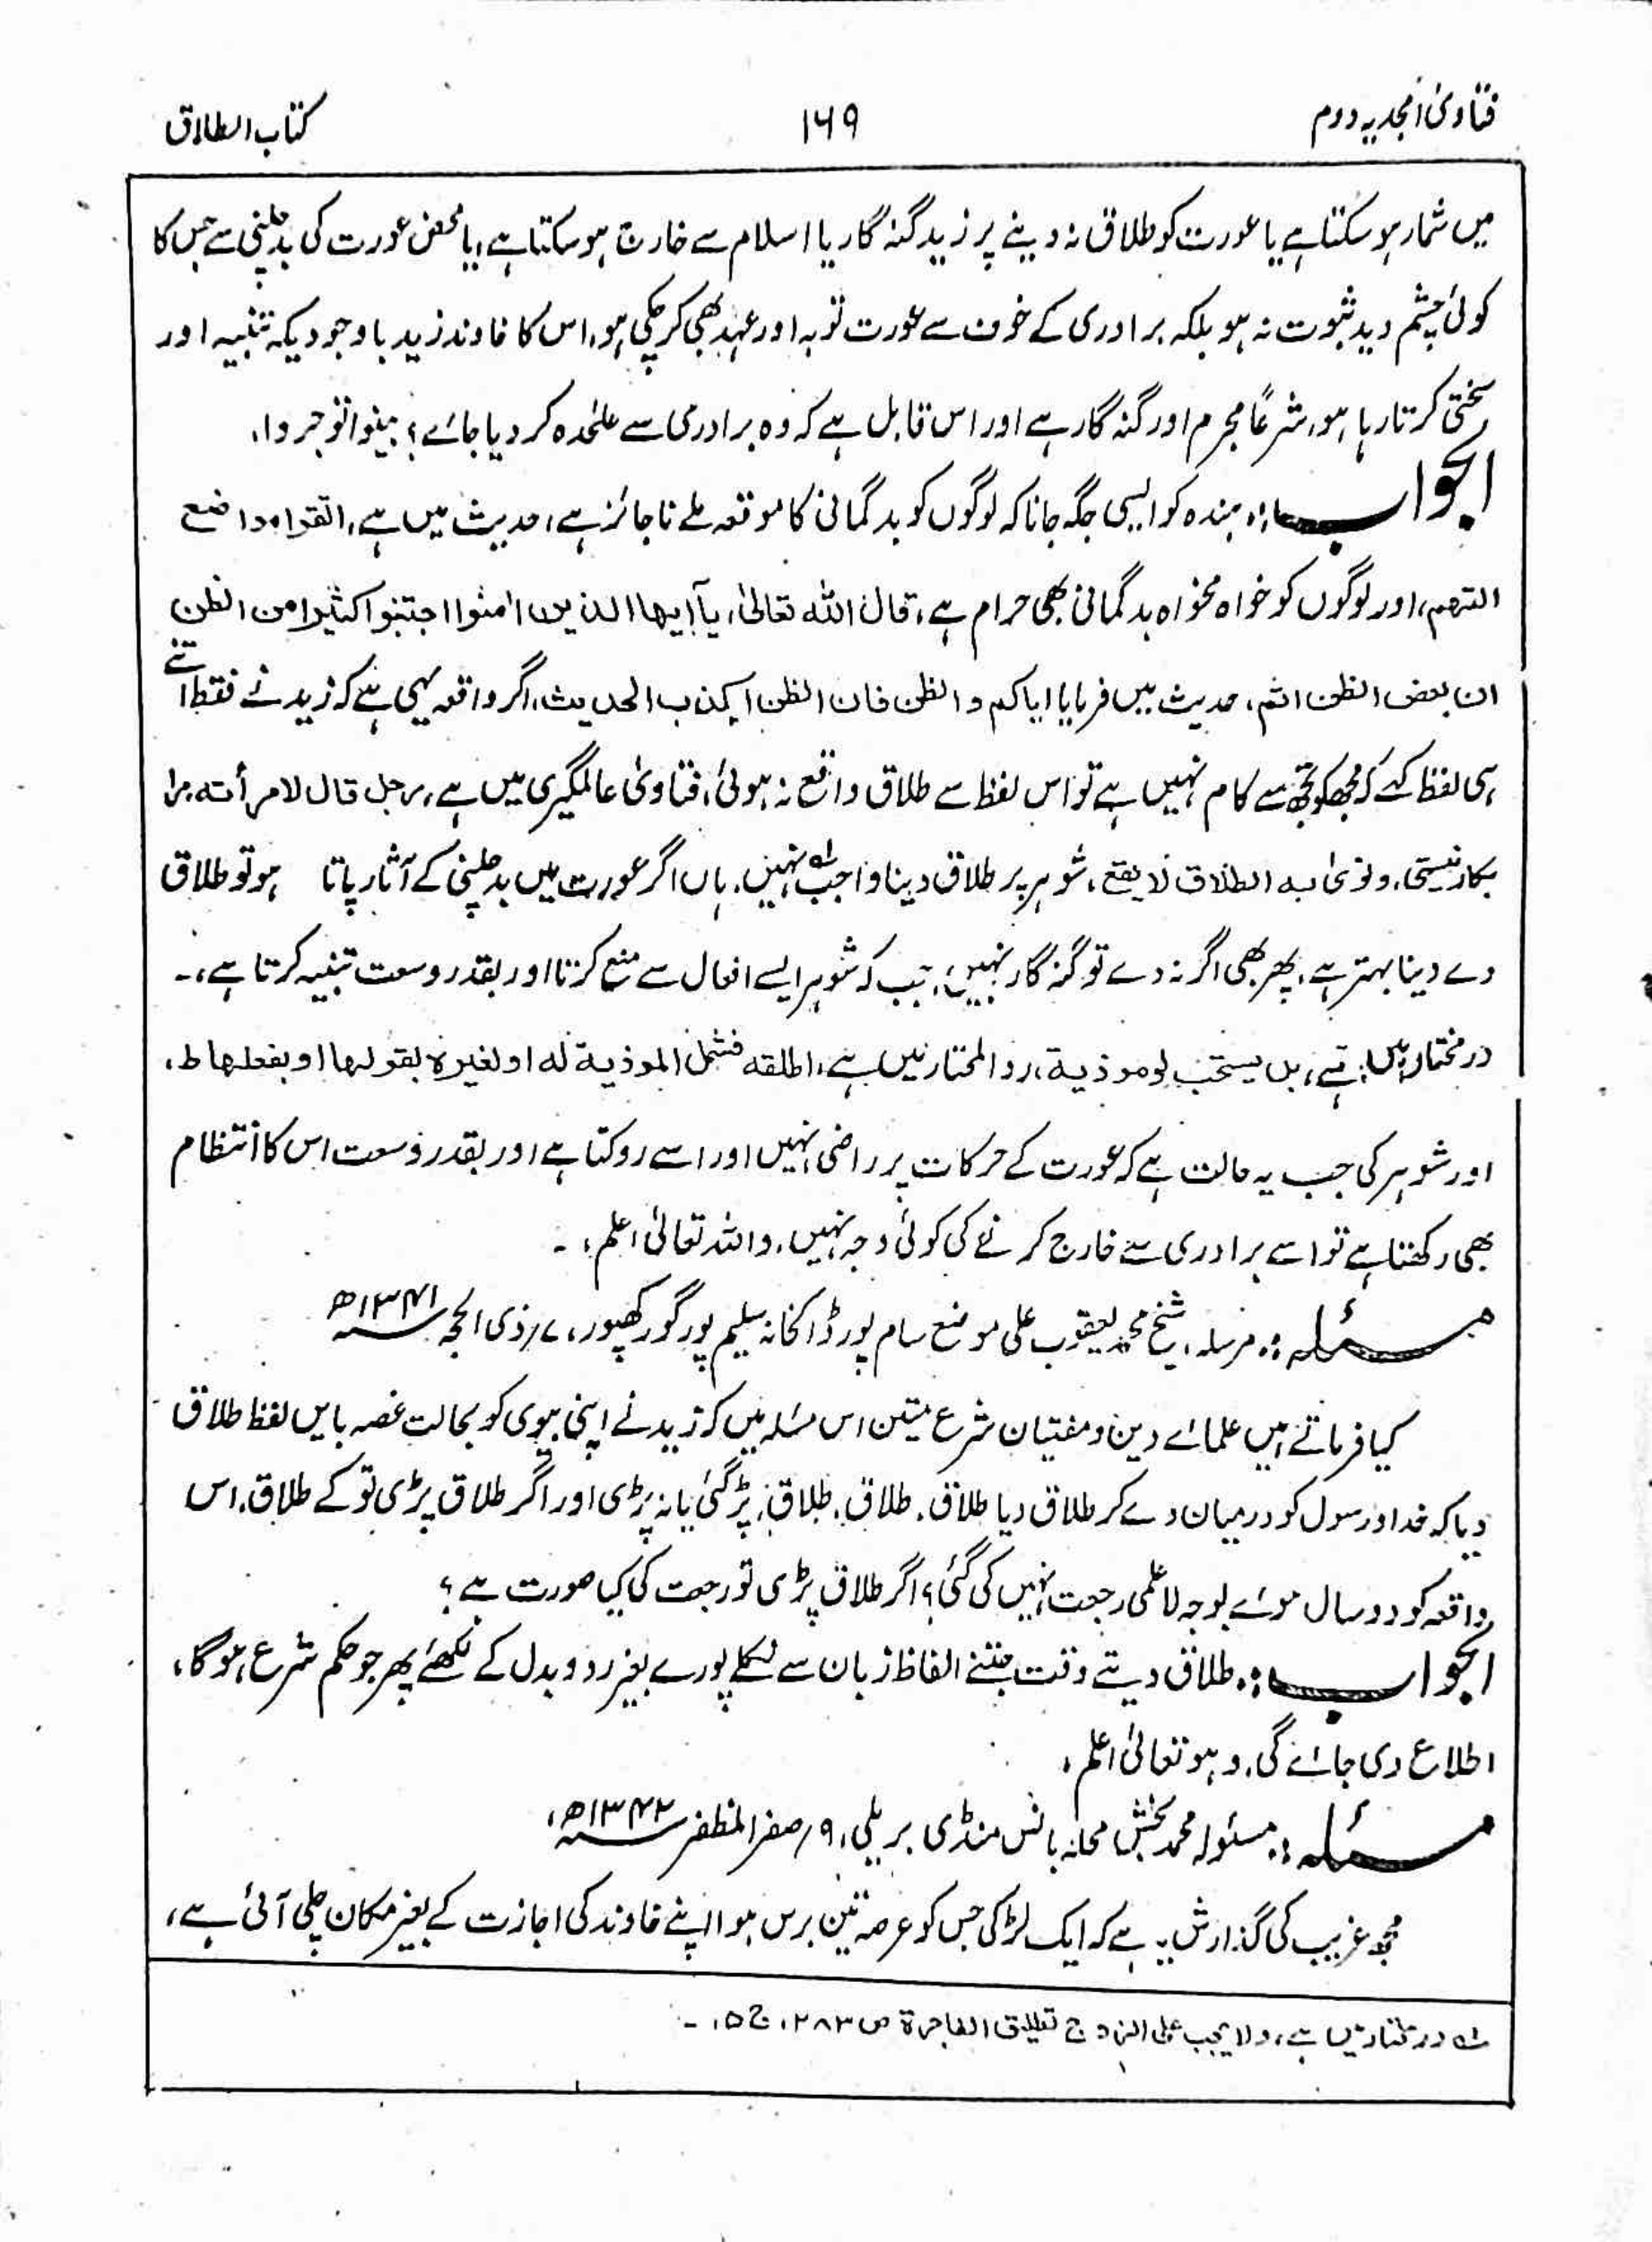 فتاویٰ امجدیہ دوم
۱۶۹
کتاب الطلاق
میں شمار ہو سکتا ہے یا عورت کو طلاق نہ دینے پر زید گنہ گار یا اسلام سے خارج ہو سکتا ہے، یا محض عورت کی بدچلنی سے جس کا
کوئی چشم دید ثبوت نہ ہو بلکہ برادری کے خوف سے عورت توبہ اور عہد بھی کر چکی ہو، اس کا خاوند زید باوجودیکہ تنبیہ اور
سختی کرتا رہا ہو، شرعًا مجرم اور گنہ گار ہے اور اس قابل ہے کہ وہ برادری سے علٰحدہ کر دیا جائے؟ بینوا توجروا،
الجواب:۔ ہندہ کو ایسی جگہ جانا کہ لوگوں کو بدگمانی کا موقعہ ملے ناجائز ہے، حدیث میں ہے، اتقوا مواضع
التهم، اور لوگوں کو خواہ مخواہ بدگمانی بھی حرام ہے، قال اللہ تعالیٰ، یآایها الذین اٰمنوا اجتنبوا کثیرا من الظن
ان بعض الظن اثم، حدیث میں فرمایا ایاکم والظن فان الظن اکذب الحدیث، اگر واقعہ یہی ہے کہ زید نے فقط اتنے
ہی لفظ کہے کہ مجھ کو تجھ سے کام نہیں ہے تو اس لفظ سے طلاق واقع نہ ہوئی، فتاویٰ عالمگیری میں ہے، رجل قال لامرأته مرا
بکار نیستی، ونوٰی به الطلاق لا یقع، شوہر پر طلاق دینا واجب نہیں لہ، ہاں اگر عورت میں بدچلنی کے آثار پاتا ہو تو طلاق
دے دینا بہتر ہے، پھر بھی اگر نہ دے تو گنہ گار نہیں، جب کہ شوہر ایسے افعال سے منع کرتا اور بقدر وسعت تنبیہ کرتا ہے،۔
در مختار میں ہے، بل یستحب لو موذیة، رد المحتار میں ہے، اطلقه فشمل الموذیة له او لغیره بقولها او بفعلها ط،
اور شوہر کی جب یہ حالت ہے کہ عورت کے حرکات پر راضی نہیں اور اسے روکتا ہے اور بقدر وسعت اس کا انتظام
بھی رکھتا ہے تو اسے برادری سے خارج کرنے کی کوئی وجہ نہیں، واللہ تعالیٰ اعلم،۔
مسئلہ:۔ مرسلہ، شیخ محمد یعقوب علی موضع سام پور ڈاکخانہ سلیم پور گورکھپور، ۷؍ ذی الحجہ ۱۳۴۱ھ
کیا فرماتے ہیں علمائے دین و مفتیان شرع متین اس مسئلہ میں کہ زید نے اپنی بیوی کو بحالت غصہ بایں لفظ طلاق
دیا کہ خدا ورسول کو درمیان دے کر طلاق دیا طلاق، طلاق، طلاق، پڑ گئی یا نہ پڑی اور اگر طلاق پڑی تو کے طلاق، اس
واقعہ کو دو سال ہوئے بوجہ لاعلمی رجعت نہیں کی گئی؟ اگر طلاق پڑی تو رجعت کی کیا صورت ہے؟
الجواب:۔ طلاق دیتے وقت جتنے الفاظ زبان سے نکلے پورے بغیر رد و بدل کے لکھئے پھر جو حکم شرع ہوگا،
اطلاع دی جائے گی، وہو تعالیٰ اعلم،
مسئلہ:۔ مسئولہ محمد بخش محلہ بانس منڈی بریلی، ۹؍ صفر المظفر ۱۳۴۲ھ،
مجھ غریب کی گذارش یہ ہے کہ ایک لڑکی جس کو عرصہ تین برس ہوا اپنے خاوند کی اجازت کے بغیر مکان چلی آئی ہے،
لہ در مختار میں ہے، ولا یجب علی الزوج تطلیق الفاجرة ص ۲۸۳، ج ۵،۔